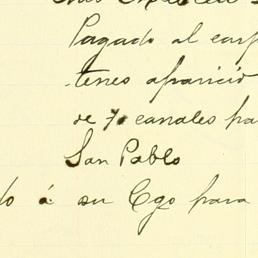 Pagado al carp
tenes aparicio
de 70 canales pa
San Pablo
do á su Cgo para